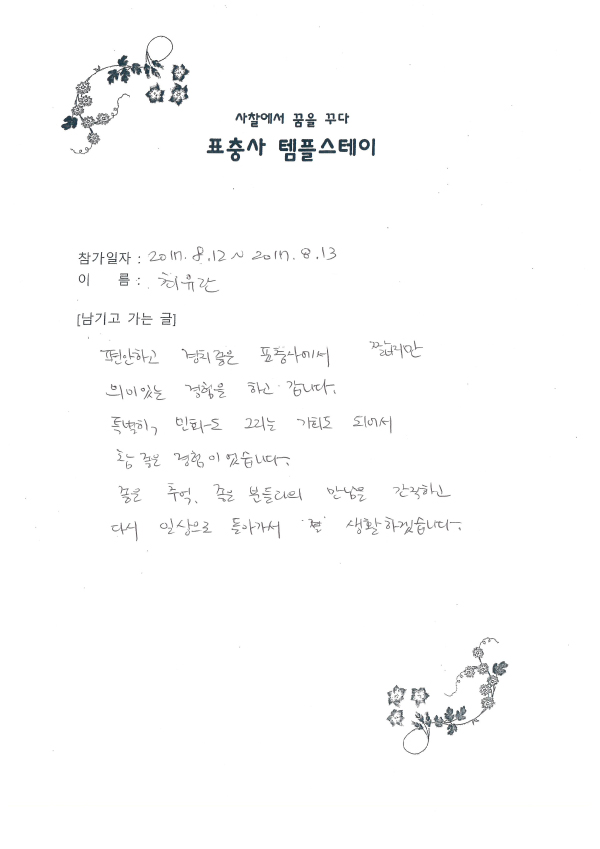 사찰에서 꿈을 꾸다
표충사 템플스테이
참가일자 : 2017. 8. 12 ~ 2017. 8. 13
이 름 : 최유란
[남기고 가는 글]
편안하고 경치좋은 표충사에서 짧지만
의미있는 경험을 하고 갑니다.
특별히, 민화도 그리는 기회도 되어서
참 좋은 경험이었습니다.
좋은 추억, 좋은 분들과의 만남을 간직하고
다시 일상으로 돌아가서 잘 생활하겠습니다.